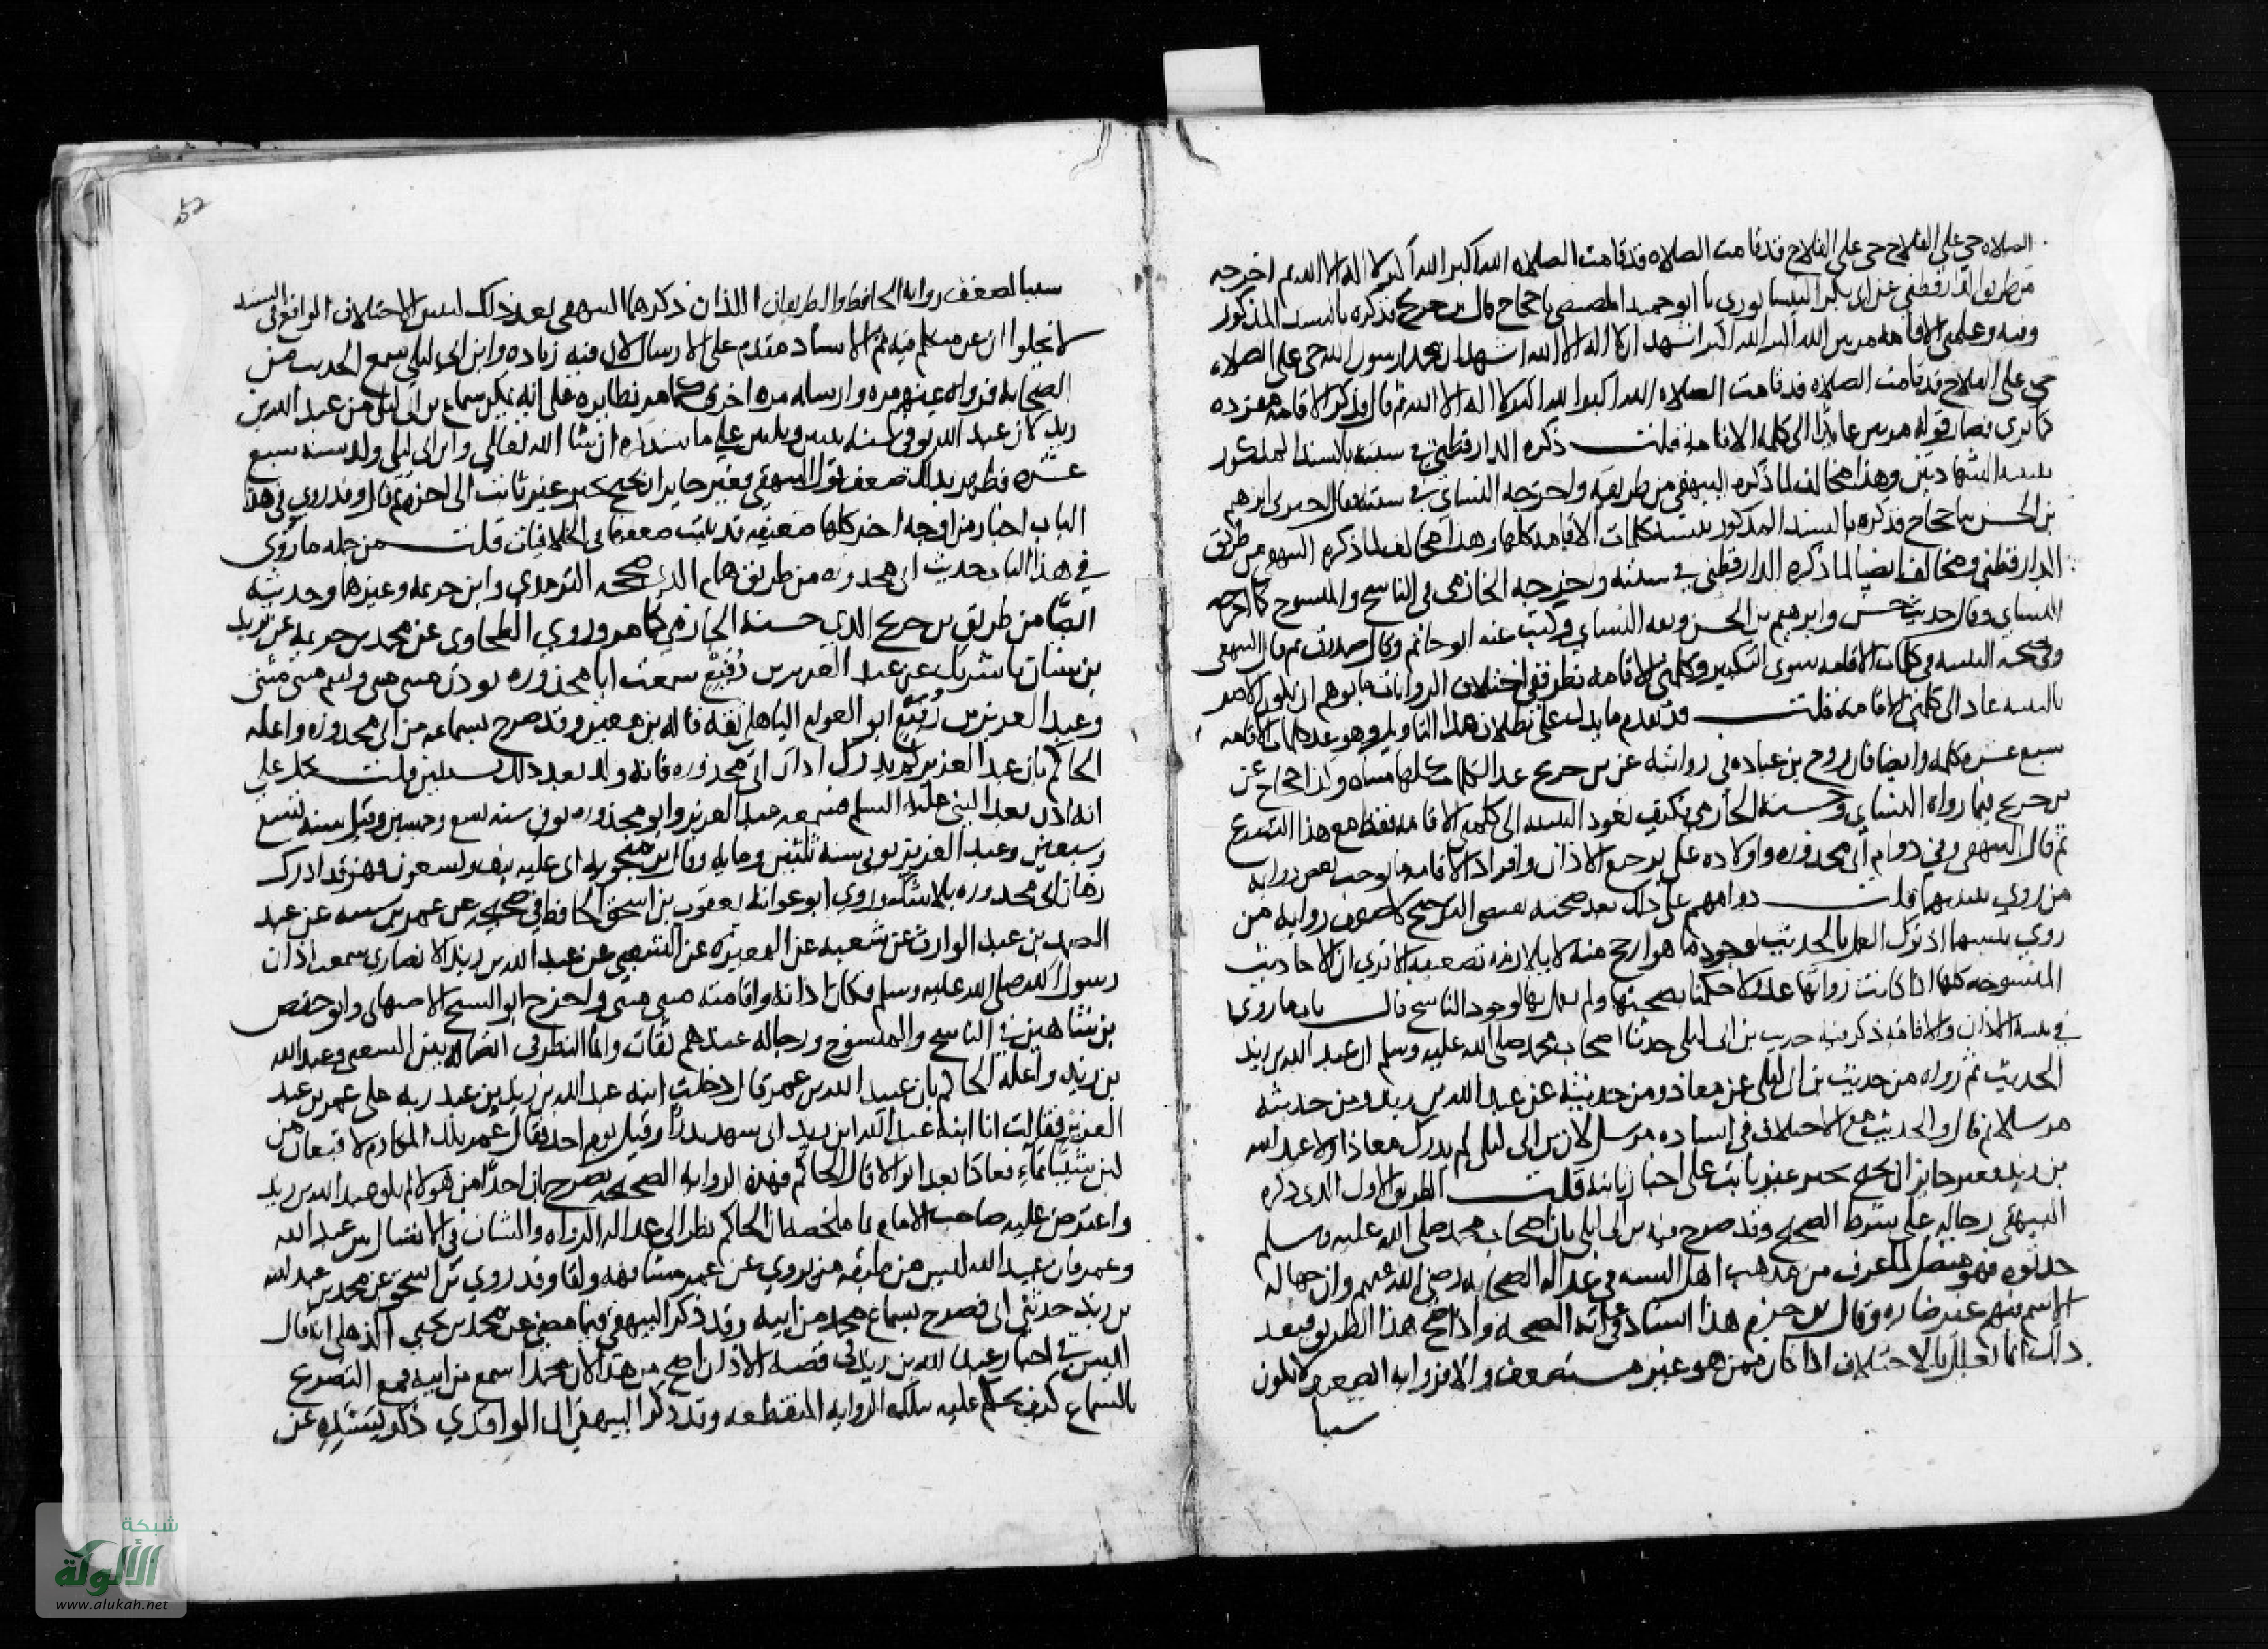 الصلاه حي على الفلاح حي على الفلاح قد قامت الصلاه قد قامت الصلاه الله اكبر الله اكبر لا اله الا الله ثم اخرجه
من طريق الدارقطني عن ابى بكر النيسابوري نا ابو حميد المصيصي نا حجاج قال بن جريج فذكره بالسند المذكور
وفيه وعلمنى الاقامه مرتين الله اكبر الله اكبر اشهد ان لا اله الا الله اشهد ان محمدا رسول الله حي على الصلاه
حي على الفلاح قد قامت الصلاه قد قامت الصلاه الله اكبر الله اكبر لا اله الا الله ثم قال وذكر الاقامه مفرده
كما ترى فصار قوله مرتين عايدا الى كلمه الاقامه قلت ذكره الدارقطني في سننه بالسند المذكور
بتثنيه الشهادتين وهذا مخالف لما ذكره البيهقي من طريقه واخرجه النسائي في سننه فقال اخبرنى ابرهيم
بن الحسن نا حجاج فذكره بالسند المذكور بتثنيه كلمات الاقامه كلها وهذا مخالف لما ذكره البيهقي من طريق
الدارقطني ومخالف ايضا لما ذكره الدارقطني في سننه واخرجه الحازمى في الناسخ والمنسوخ كما اخرجه
النساي وقال حديث حسن وابرهيم بن الحسن وثقه النساي وكتب عنه ابو حاتم وقال صدوق ثم قال البيهقي
وفى صحه التثنيه في كلمات الاقامه سوى التكبير وكلمتى الاقامه نظر ففى اختلاف الروايات ما يوهم ان يكون الامر
بالتثنيه عاد الى كلمتى الاقامه قلت قد تقدم ما يدل على بطلان هذا التاويل وهو عد كلمات الاقامه
سبع عشره كلمه وايضا فان روح بن عباده في روايته عن بن جريج عد الكلمات كلها مثناه وكذا حجاج عن
بن جريج فيما رواه النساي وحسنه الحازمي فكيف تعود التثنيه الى كلمتى الاقامه فقط مع هذا التصريح
ثم قال البيهقي وفي دوام ابى محذوره واولاده على ترجيع الاذان وافراد الاقامه ما يوجب ضعف روايه
من روي تثنيتها قلت دوامهم على ذلك بعد صحته يقتضى الترجيح لا ضعف روايه من
روي تثنيتها اذ ترك العمل بالحديث لوجود ما هو ارجح منه لا يلزم منه تضعيفه الا ترى ان الاحاديث
المنسوخه كلها اذا كانت رواتها عدولا حكمنا بصحتها ولم يعمل بها لوجود الناسخ قال باب ما روي
في تثنيه الاذان والاقامه ذكر فيه حديث بن ابى ليلى حدثنا اصحاب محمد صلى الله عليه وسلم ان عبد الله بن زيد
الحديث ثم رواه من حديث بن ابى ليلى عن معاذ ومن حديثه عن عبد الله بن زيد ومن حديثه
مرسلا ثم قال والحديث مع الاختلاف في اسناده مرسل لان بن ابى ليلى لم يدرك معاذا ولا عبد الله
بن زيد فغير جايز ان يحتج بخبر غير ثابت على اخبار ثابته قلت الطريق الاول الذى ذكره
البيهقي رجاله على شرط الصحيح وقد صرح فيه بن ابى ليلى بان اصحاب محمد صلى الله عليه وسلم
حدثوه فهو متصل لما عرف من مذهب اهل السنه في عداله الصحابه رضى الله عنهم وان جهاله
الاسم فيهم غير ضاره وقال بن حزم هذا اسناد في غايه الصحه واذا صح هذا الطريق فبعد
ذلك انما يعلل بالاختلاف اذا كان ممن هو غير مستضعف والا فروايه الضعيف لا تكون
سببا
52
سببا لضعف روايه الحافظ والطريقان اللذان ذكرهما البيهقي بعد ذلك ليس الاختلاف الواقع في السند
لا يخلوا ان عن متكلم فيه ثم الاسناد مقدم على الارسال لان فيه زياده وابن ابى ليلى سمع الحديث من
الصحابه فرواه عنهم مره وارساله مره اخرى كما مر نظايره على انه يمكن سماع بن ابى ليلى من عبد الله بن
زيد لان عبد الله توفى سنه ثنتين وثلثين على ما سنذكره ان شا الله تعالى وابن ابى ليلى ولد سنه سبع
عشره فظهر بذلك ضعف قول البيهقي فغير جايز ان يحتج بخبر غير ثابت الى اخره ثم قال وقد روي في هذا
الباب اخبار من اوجه اخر كلها ضعيفه قد بينت ضعفها في الخلافيات قلت من جمله ما روى
في هذا الباب حديث ابى محذوره من طريق همام الذى صححه الترمذي وابن خزيمه وغيرها وحديثه
ايضا من طريق بن جريج الذي حسنه الحازمي كما مر وروي الطحاوى عن محمد بن خزيمه عن يزيد
بن سنان نا شريك عن عبد العزيز بن رفيع سمعت ابا محذوره يوذن مثنى مثنى ويقيم مثنى مثنى
وعبد العزيز بن رفيع ابو العوام الباهلي ثقه قاله بن معين وقد صرح بسماعه من ابى محذوره واعله
الحاكم بان عبد العزيز لم يدرك اذان ابى محذوره فانه ولد بعد ذلك بسنين قلت يحمل على
انه اذن بعد النبي عليه السلم فسمعه عبد العزيز وابو محذوره توفى سنه تسع وخمسين وقيل سنه تسع
وسبعين وعبد العزيز توفى سنه ثلثين ومايه وقال بن منجويه اتى عليه نيف وتسعون فهو قد ادرك
زمان ابى محذوره بلا شك وروي ابو عوانه يعقوب بن اسحق الحافظ في صحيحه عن عمر بن شبه عن عبد
الصمد بن عبد الوارث عن شعبه عن المغيره عن الشعبي عن عبد الله بن زيد الانصاري سمعت اذان
رسول الله صلى الله عليه وسلم فكان اذانه واقامته مثنى مثنى واخرج ابو الشيخ الاصبهانى وابو حفص
بن شاهين في الناسخ والمنسوخ ورجاله عندهم ثقات وانما النظر في اتصاله بين الشعبي وعبد الله
بن زيد واعله الحاكم بان عبيد الله بن عمر قال دخلت ابنه عبد الله بن زيد بن عبد ربه على عمر بن عبد
العزيز فقالت انا ابنه عبد الله بن زيد ابى شهد بدرا وقتل يوم احد فقال عمر تلك المكارم لا قعبان من
لبن شيبا بماء فعادا بعد ابوالا قال الحاكم فهذه الروايه الصحيحه تصرح بان احدا من هولا لم يلق عبد الله بن زيد
واعترض عليه صاحب الامام بما ملخصه ان الحاكم نظر الى عداله الرواه والشان في الاتصال بين عبد الله
وعمر فان عبيد الله ليس من طبقه من يروي عن عمر مشافهه ولقا وقد روي بن اسحق عن محمد بن عبد الله
بن زيد حدثنى ابى فصرح بسماع محمد من ابيه وقد ذكر البيهقي فيما مضى عن محمد بن يحيى الذهلى انه قال
ليس في اخبار عبد الله بن زيد في قصه الاذان اصح من هذا لان محمدا سمع من ابيه فمع التصريح
بالسماع كيف يحكم عليه بتلك الروايه المنقطعه وقد ذكر البيهقي ان الواقدي ذكر بسنده عن
شبكة
الألوكة
www.alukah.net